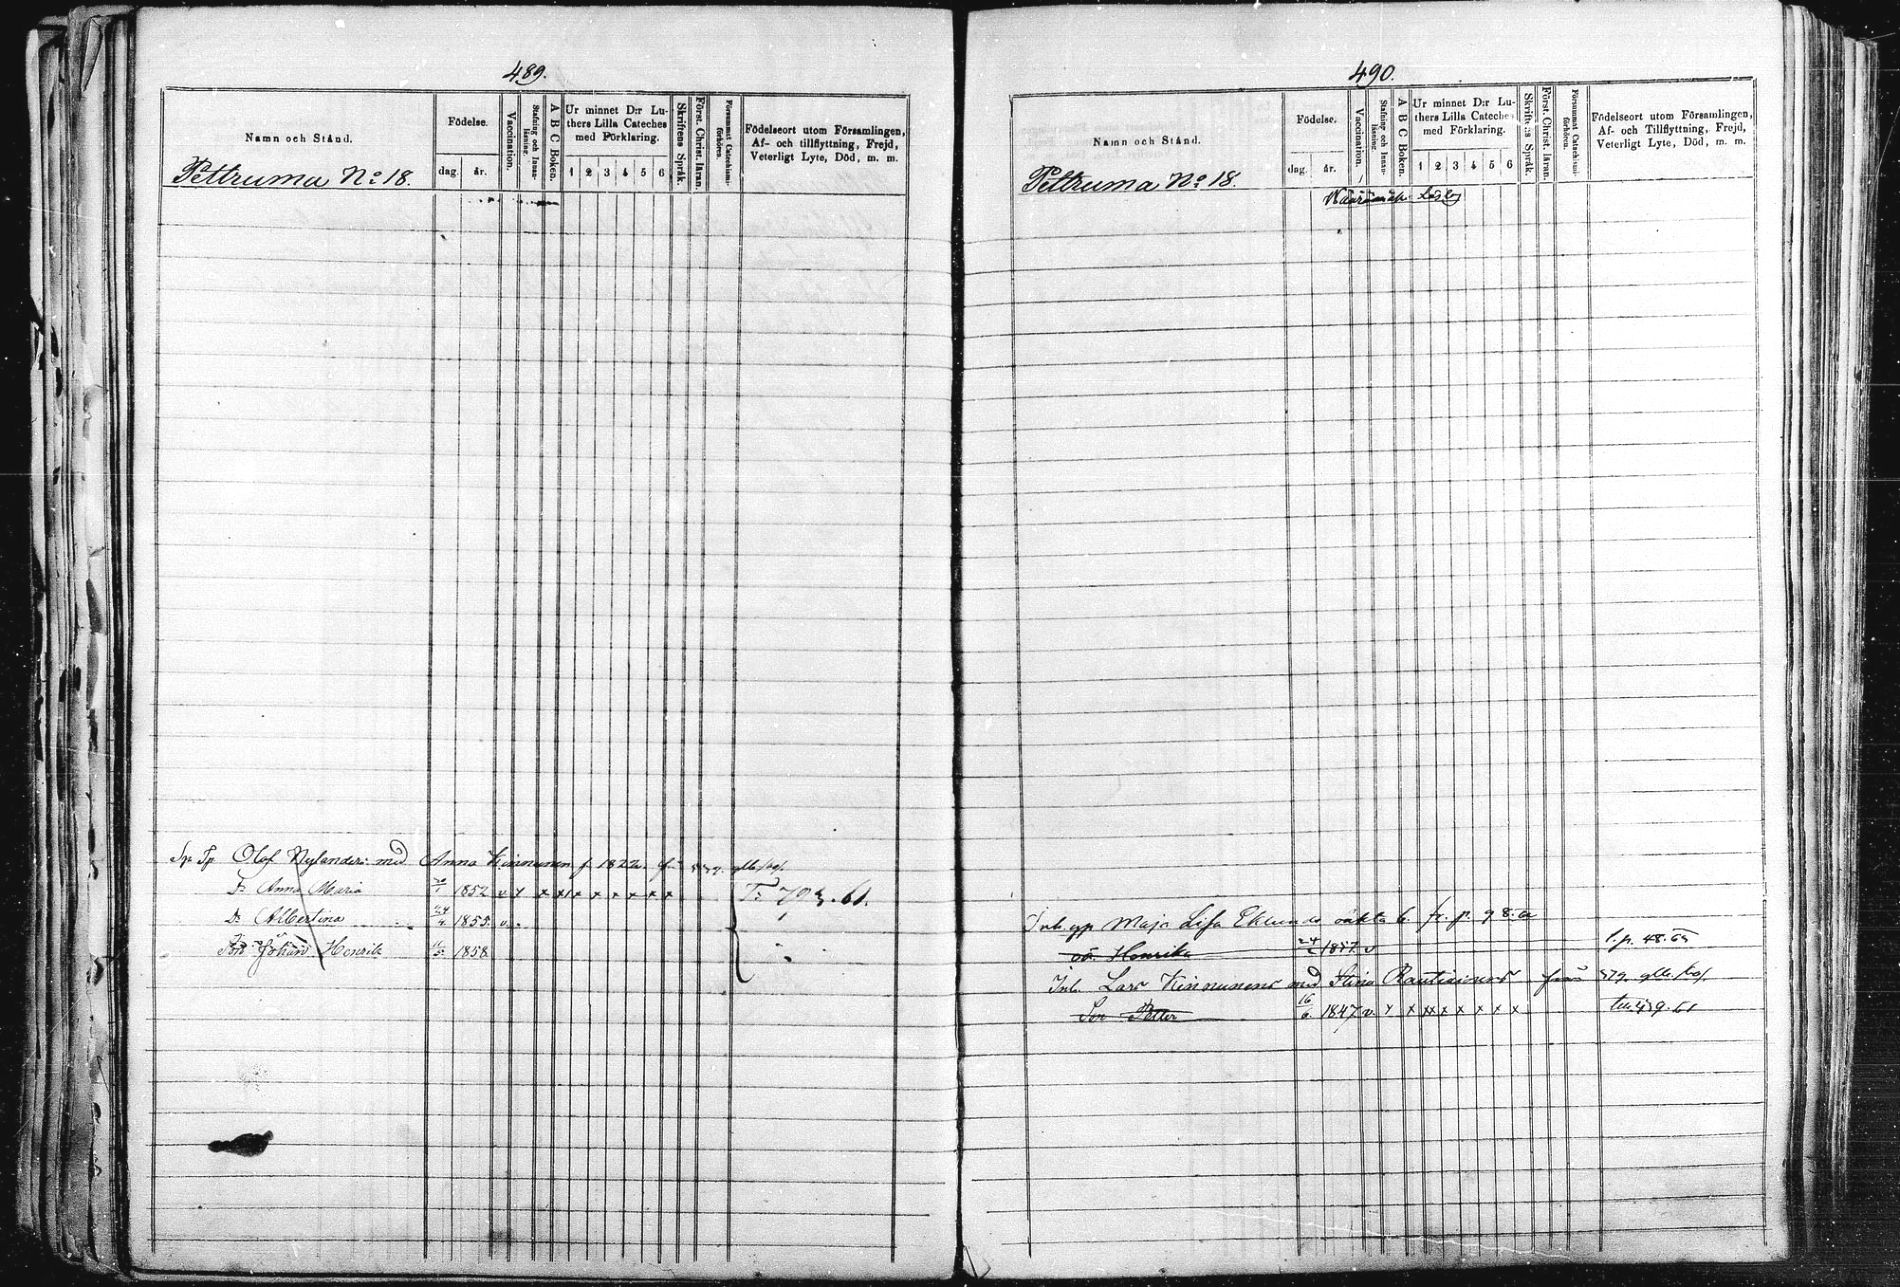 489.
Namn och Stånd.
Födelse.
dag. år.
Vaccination.
Stafning och Innanläsning.
A B C Boken.
Ur minnet D:r Luthers Lilla Cateches med Förklaring.
1 2 3 4 5 6
Skriftens Språk.
Först. Christ. läran.
Försummat Catechismiförhören.
Födelseort utom Församlingen,
Af- och tillflyttning, Frejd,
Veterligt Lyte, Död, m. m.
Pettruma No 18.
Olof Nylander med Anna Kinnunen f. 1822.
Dr Anna Maria 20/1 1852 v y x xx x x x x x x
Dr Albertina 24/4 1855 v.
Johan Henrik 1858
490.
Namn och Stånd.
Födelse.
dag. år.
Vaccination.
Stafning och Innanläsning.
A B C Boken.
Ur minnet D:r Luthers Lilla Cateches med Förklaring.
1 2 3 4 5 6
Skriftens Språk.
Först. Christ. läran.
Försummat Catechismiförhören.
Födelseort utom Församlingen,
Af- och Tillflyttning, Frejd,
Veterligt Lyte, Död, m. m.
Pettruma No 18.
Maja Lisa Eklunds oäkta b. fr. p. 98.
oä. Henrika 1857 v
Inh. Lars Kinnunens med Stina Rautiainens från
Son Petter 16/6 1847 v. y x xx x x x x x